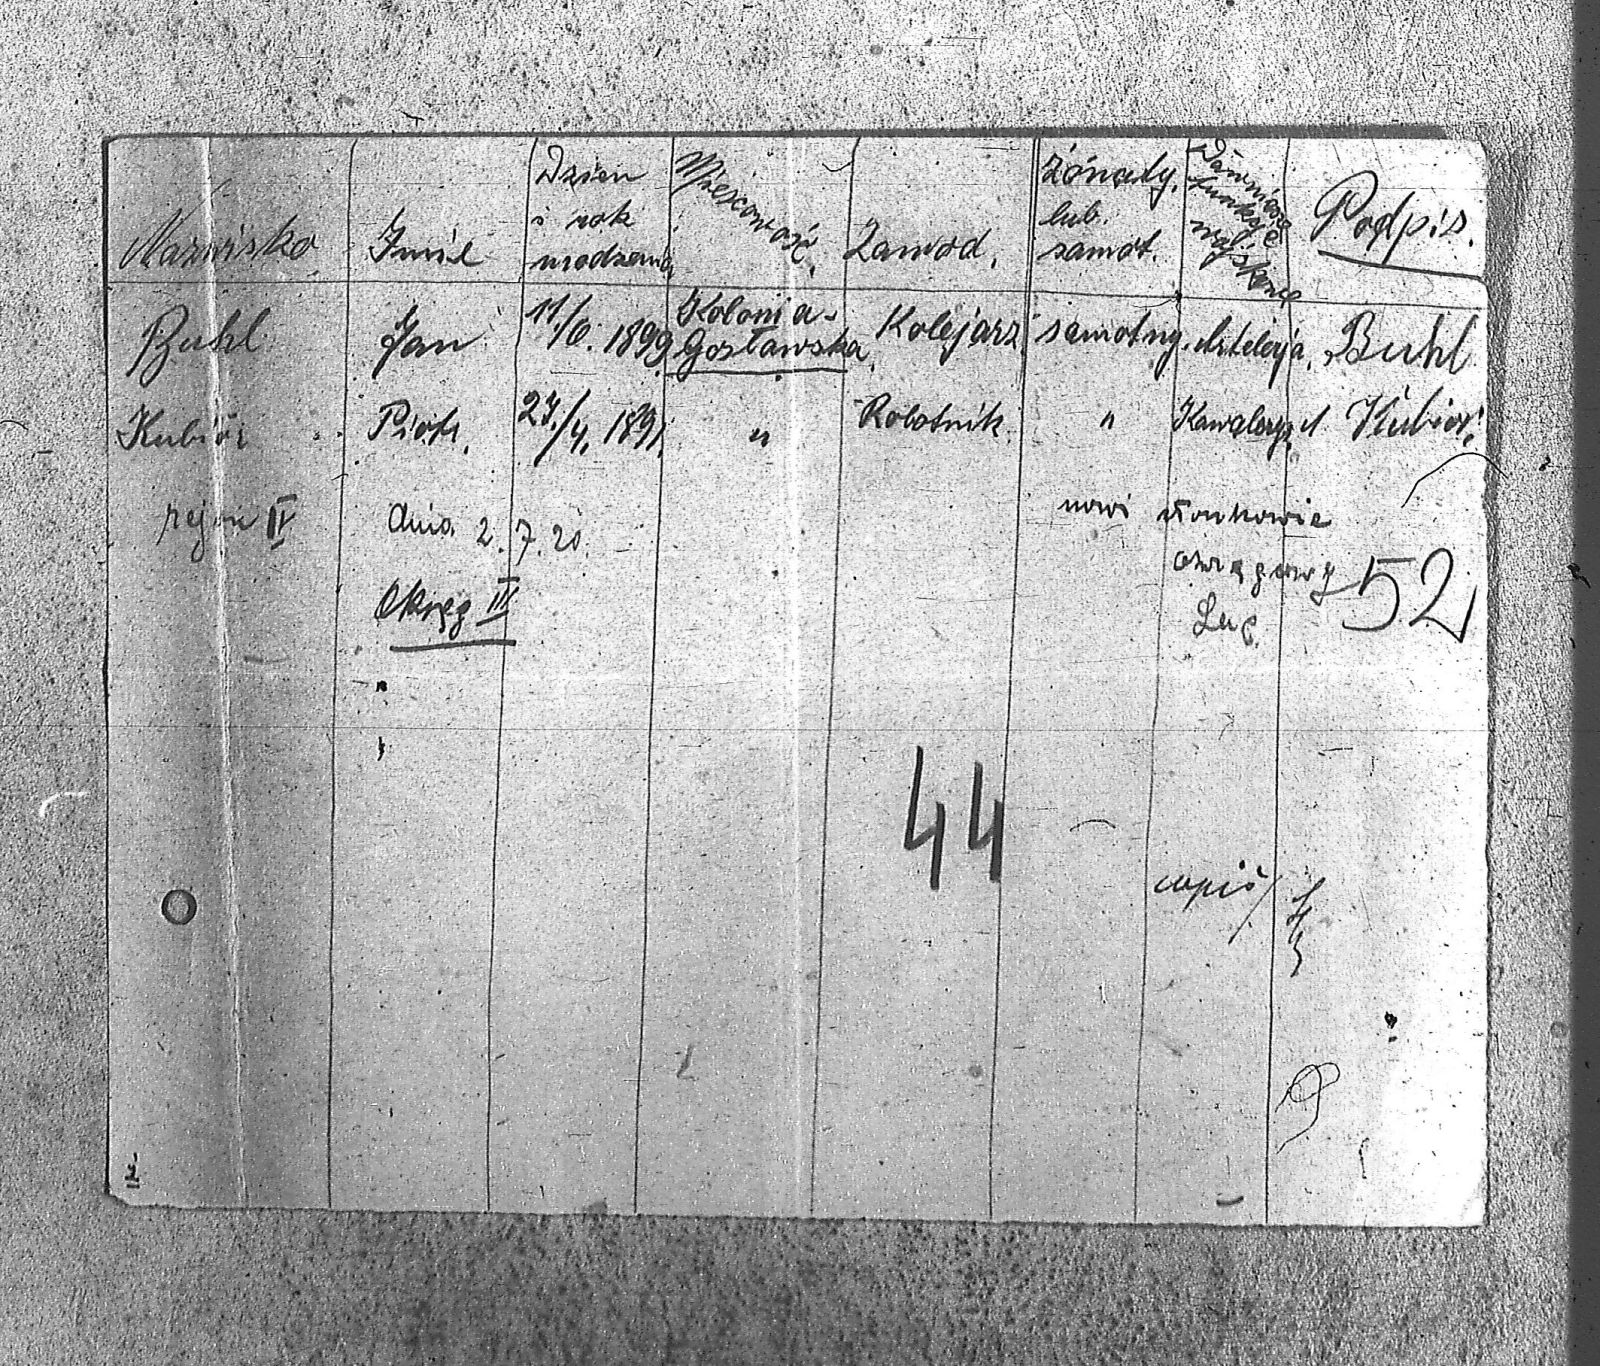 Nazwisko Imię Dzien i rok urodzenia Miejscowość, Zawod, Żónaty, lub. samot. Dawniesze funkcje wojskowe Podpis.
Buhl Jan 11./6. 1899 Kolonia-Gosławska Kolejarz samotny. Artelerja, Buhl
Kubior Piotr. 27./4. 1891. " Robotnik. " Kawalerz. Kubior
rejon IV dnia 2.7.20. nowi członkowie
Okręg III okręgowy 52
44
wpis/